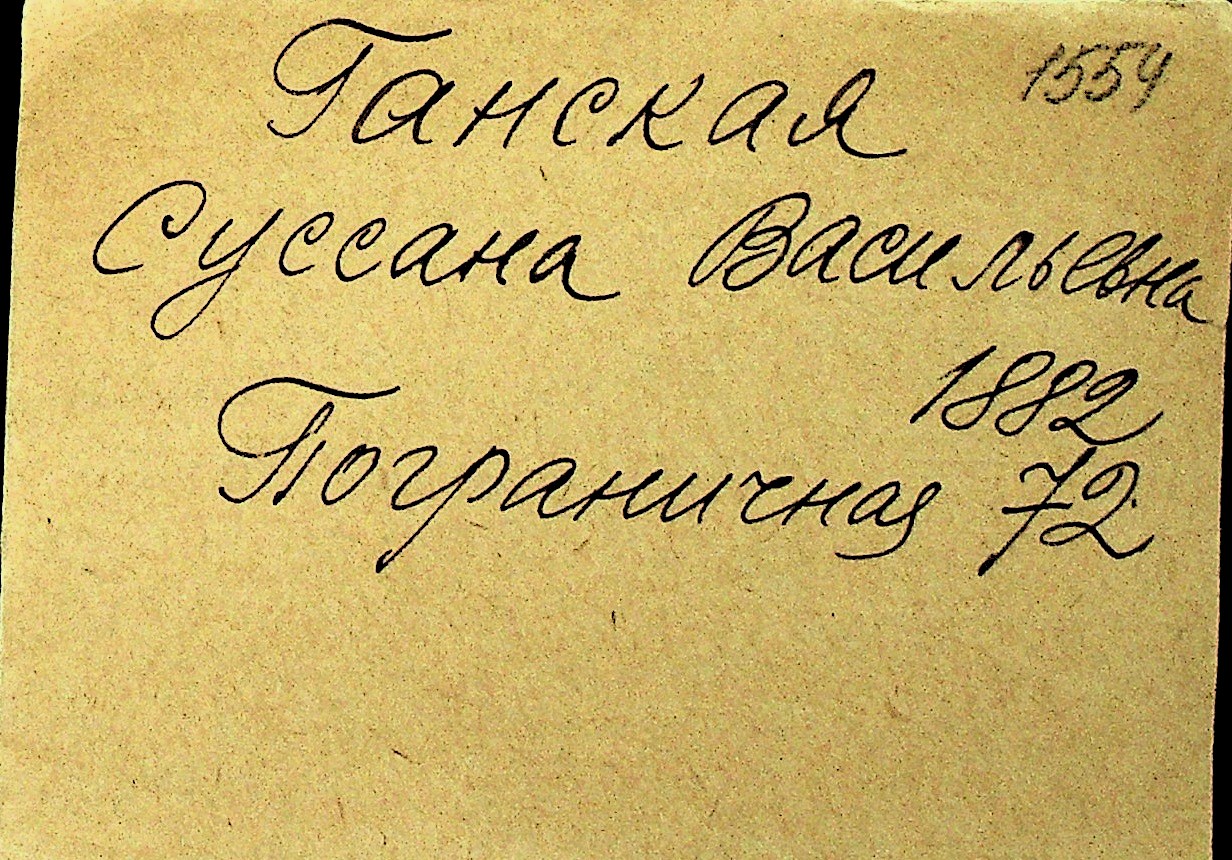 Ганская 1554
Суссана Васильевна
1882
Пограничная 72